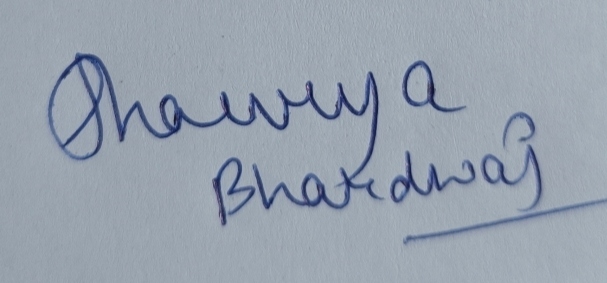 Shaurya
Bhardwaj